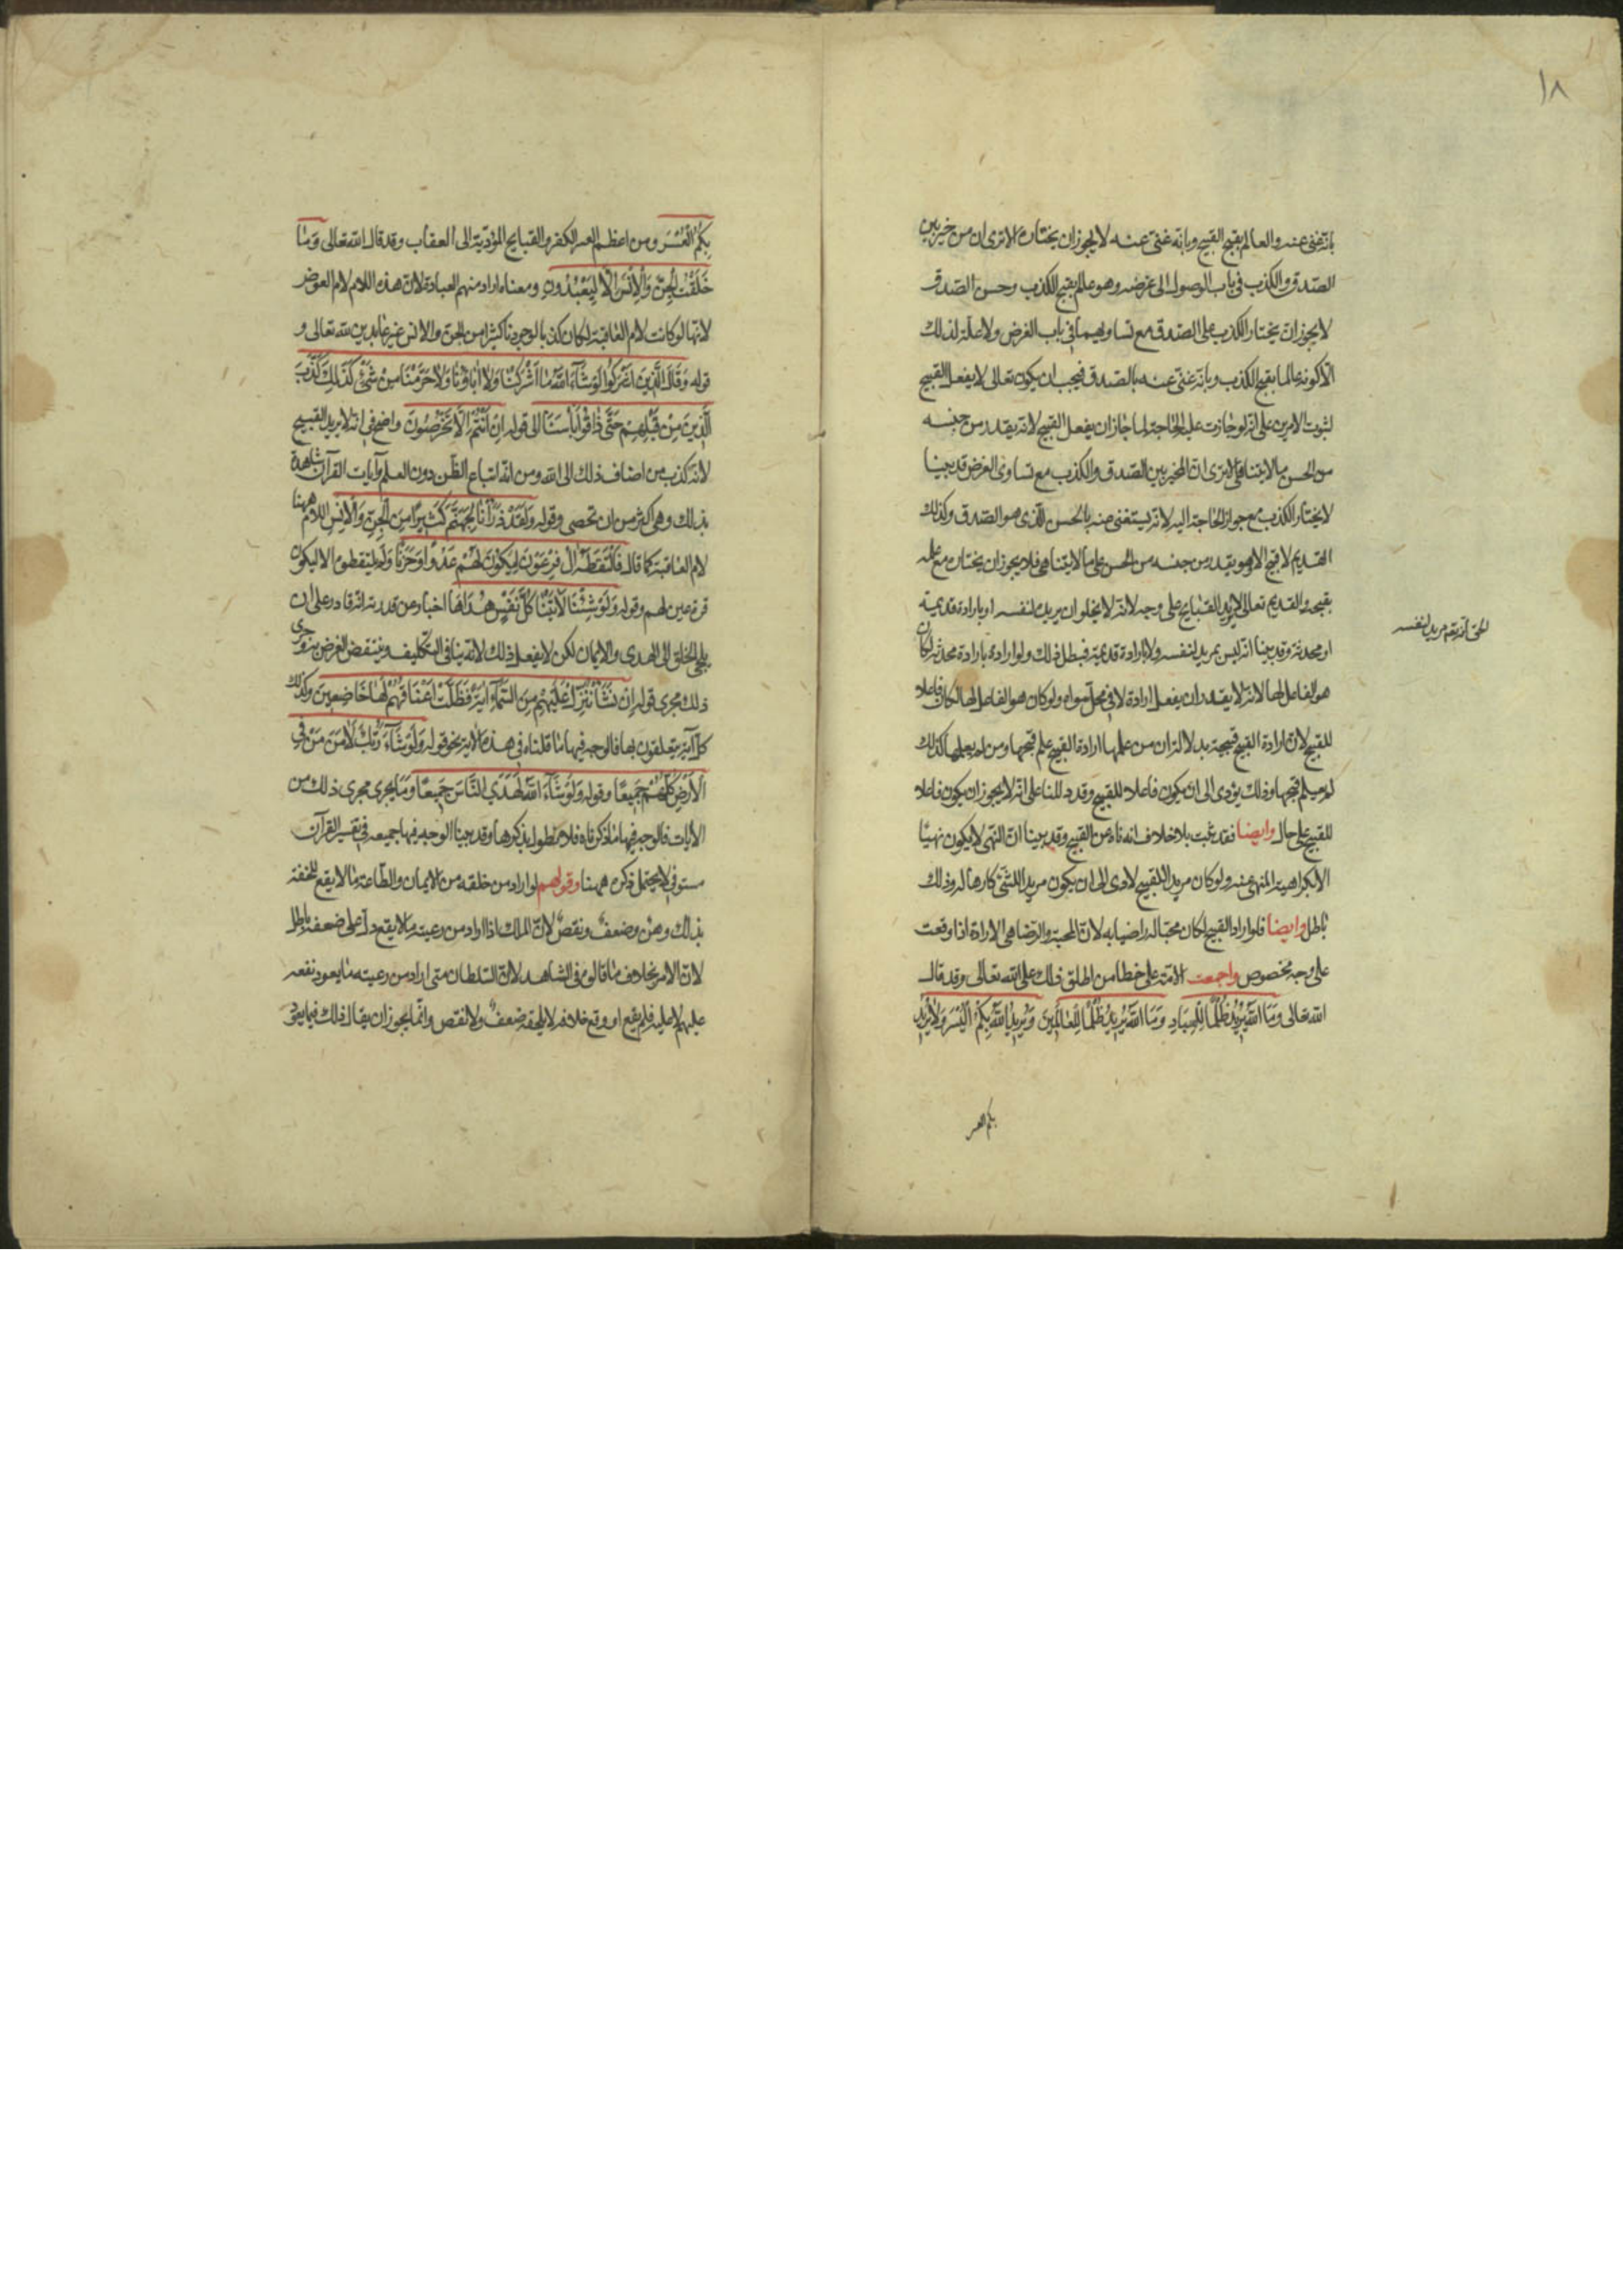 ١٨
بانه غنى عنه والعالم بقبح القبيح وبانه غنى عنه لا يجوز ان يختاره الا ترى ان من خير بين
الصدق والكذب فى باب الوصول الى غرضه وهو عالم بقبح الكذب وحسن الصدق
لا يجوز ان يختار الكذب على الصدق مع تساويهما فى باب الغرض ولا علة لذلك
الا كونه عالما بقبح الكذب وبانه غنى عنه بالصدق فيجب ان يكون تعالى لا يفعل القبيح
لثبوت الامرين على انه لو جازت عليه الحاجة لما جاز ان يفعل القبيح لانه يقدر من جنسه
من الحسن ما لا يتناهى الا ترى ان المخير بين الصدق والكذب مع تساوى الغرض قد بينا
لا يختار الكذب مع جواز الحاجة اليه لانه يستغنى عنه بالحسن الذى هو الصدق وكذلك
القديم لا قبيح الا وهو يقدر من جنسه من الحسن على ما لا يتناهى فلا يجوز ان يختاره مع علمه
بقبحه والقديم تعالى لا يريد القبايح على وجه لانه لا يخلوا ان يريده لنفسه او بارادة قديمة
الحق انه تعم مريد لنفسه
او محدثة وقد بينا انه ليس بمريد لنفسه ولا بارادة قديمة فبطل ذلك ولو اراده بارادة محدثة لكان
هو الفاعل لها لانه لا يقدر ان يفعل ارادة لا فى محل سواه ولو كان هو الفاعل لها لكان فاعلا
للقبيح لان ارادة القبيح قبيحة بدلالة ان من علمها ارادة القبيح علم قبحها ومن لم يعلمها كذلك
لم يعلم قبحها وذلك يؤدى الى ان يكون فاعلا للقبيح وقد دللنا على انه لا يجوز ان يكون فاعلا
للقبيح على حال وايضا فقد ثبت بلا خلاف انه ناه عن القبيح وقد بينا ان النهى لا يكون نهيا
الا بكراهية المنهى عنه ولو كان مريدا للقبيح لادى الى ان يكون مريدا للشئ كارها له وذلك
باطل وايضا فلو اراد القبيح لكان محبا له راضيا به لان المحبة والرضا هى الارادة اذا وقعت
على وجه مخصوص واجمعت الامة على خطا من اطلق ذلك على الله تعالى وقد قال
الله تعالى وَمَا اللّٰهُ يُرِيدُ ظُلْمًا لِلْعِبَادِ وَمَا اللّٰهُ يُرِيدُ ظُلْمًا لِلْعَالَمِينَ وَيُرِيدُ اللّٰهُ بِكُمُ الْيُسْرَ وَلَا يُرِيدُ
بكم العسر
بِكُمُ الْعُسْرَ ومن اعظم العسر الكفر والقبايح المؤدية الى العقاب وقد قال الله تعالى وَمَا
خَلَقْتُ الْجِنَّ وَالْاِنْسَ اِلَّا لِيَعْبُدُونِ ومعناه اراد منهم العبادة لان هذه اللام لام الغرض
لانها لو كانت لام العاقبة لكان كذبا لوجودنا كثيرا من الجن والانس غير عابدين لله تعالى و
قوله وَقَالَ الَّذِينَ اَشْرَكُوا لَوْ شَاءَ اللّٰهُ مَا اَشْرَكْنَا وَلَا اٰبَاؤُنَا وَلَا حَرَّمْنَا مِنْ شَئٍ كَذٰلِكَ كَذَّبَ
الَّذِينَ مِنْ قَبْلِهِمْ حَتَّى ذَاقُوا بَأْسَنَا الى قوله اِنْ اَنْتُمْ اِلَّا تَخْرُصُونَ واضح فى انه لا يريد القبيح
لانه كذب من اضاف ذلك الى الله ومن انه اتباع الظن دون العلم وآيات القرآن شاهدة
بذلك وهى اكثر من ان تحصى وقوله وَلَقَدْ ذَرَأْنَا لِجَهَنَّمَ كَثِيرًا مِنَ الْجِنِّ وَالْاِنْسِ اللام ههنا
لام العاقبة كما قال فَالْتَقَطَهُ اٰلُ فِرْعَوْنَ لِيَكُونَ لَهُمْ عَدُوًّا وَحَزَنًا ولم يلتقطوه الا ليكون
قرة عين لهم وقوله وَلَوْ شِئْنَا لَاٰتَيْنَا كُلَّ نَفْسٍ هُدَاهَا اخبار عن قدرته انه قادر على ان
يلجئ الخلق الى الهدى والايمان لكن لا يفعل ذلك لانه ينافى التكليف وينتقض الغرض به وجرى
ذلك مجرى قوله اِنْ نَشَأْ نُنَزِّلْ عَلَيْهِمْ مِنَ السَّمَاءِ اٰيَةً فَظَلَّتْ اَعْنَاقُهُمْ لَهَا خَاضِعِينَ وكذلك
كل آية يتعلقون بها فالوجه فيها ما قلناه فى هذه الاية نحو قوله وَلَوْ شَاءَ رَبُّكَ لَاٰمَنَ مَنْ فِى
الْاَرْضِ كُلُّهُمْ جَمِيعًا وقوله وَلَوْ شَاءَ اللّٰهُ لَهَدَى النَّاسَ جَمِيعًا وما يجرى مجرى ذلك من
الآيات فالوجه فيها ما ذكرناه فلا نطول بذكرها وقد بينا الوجه فيها جميعه فى تفسير القرآن
مستوفى لا يحتمل ذكره ههنا وقولهم لو اراد من خلقه من الايمان والطاعة ما لا يقع للحقه
بذلك وهن وضعف ونقص لان الملك اذا اراد من رعيته ما لا يقع دل على ضعفه باطل
لان الامر بخلاف ما قالوه فى الشاهد لان السلطان متى اراد من رعيته ما يعود نفعه
عليهم لا عليه فلم يقع او وقع خلافه لا يلحقه ضعف ولا نقص وانما يجوز ان يقال ذلك فيما يعود